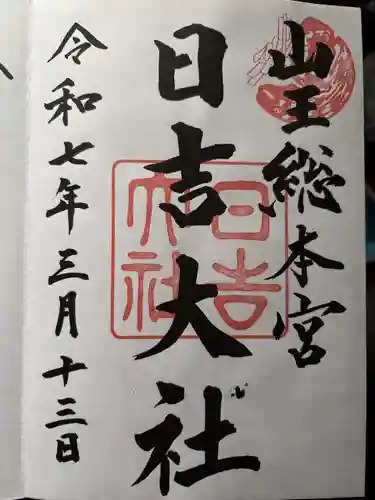 山王總本宮
日吉大社
令和七年三月十三日
日吉
大社